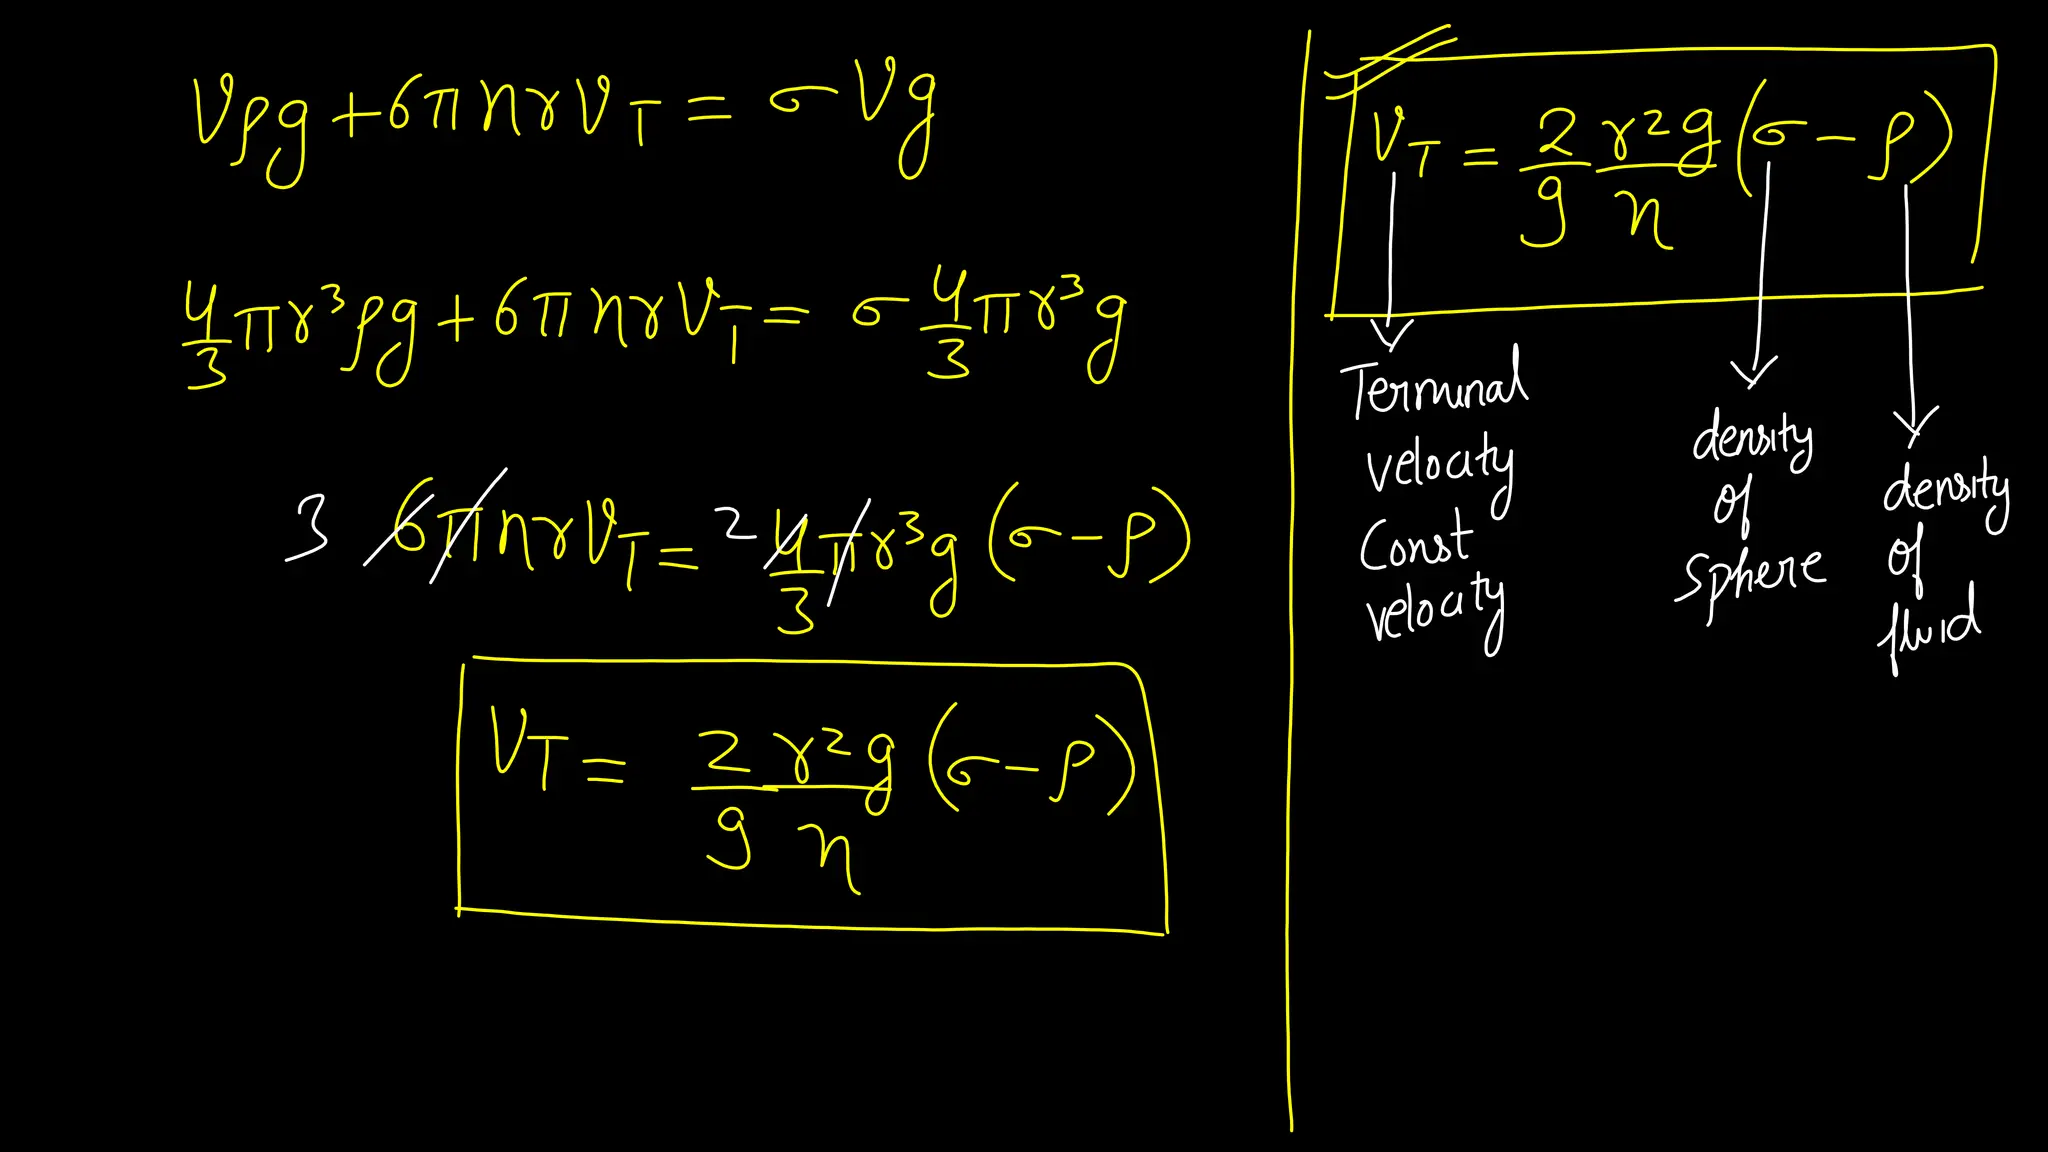 Vρg + 6πηrV_T = σVg
4/3 πr³ρg + 6πηrV_T = σ 4/3 πr³g
3 6πηrV_T = 2 4/3 πr³g (σ - ρ)
V_T = 2/9 r²g/η (σ - ρ)
V_T = 2/9 r²g/η (σ - ρ)
Terminal
velocity
Const
velocity
density
of
Sphere
density
of
fluid